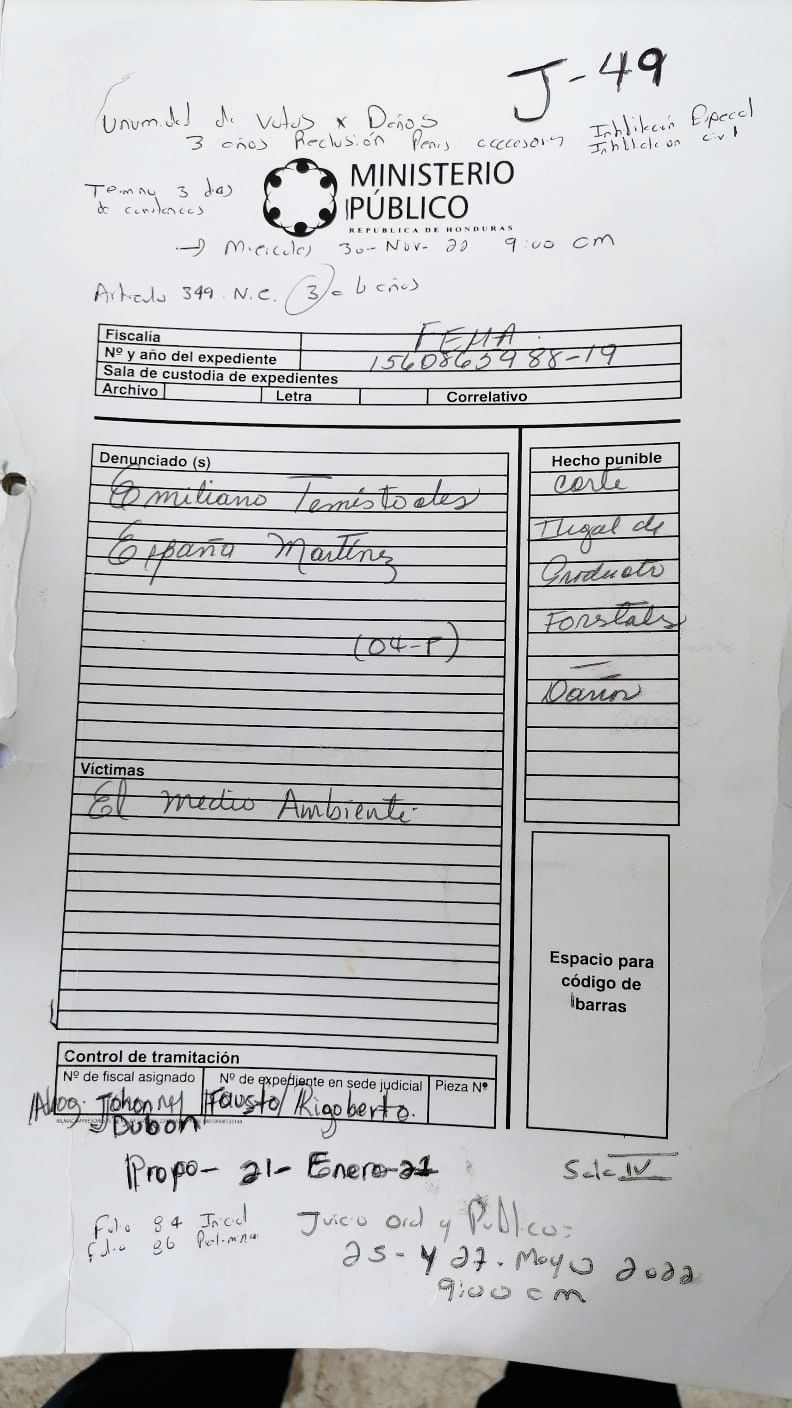 J-49
Unimidad de Votos x Daños
3 años Reclusión Penas accesorias Inhabilitación Especial
Inhabilitacion civil
Termino 3 dias
de
MINISTERIO
PÚBLICO
REPUBLICA DE HONDURAS
→ Miercoles 30-Nov-22 9:00 am
Articulo 349. N.C. 3 = 6 años
Fiscalía FEMA.
Nº y año del expediente 1560865988-19
Sala de custodia de expedientes
Archivo Letra Correlativo
Denunciado (s)
Emiliano Temístocles
España Martínez
(04-F)
Hecho punible
Corte
Ilegal de
Producto
Forstals
—
Daños
Víctimas
El medio Ambiente.
Espacio para
código de
barras
Control de tramitación
Nº de fiscal asignado Nº de expediente en sede judicial Pieza Nº
Abog. Johonny Fausto/Rigoberto.
Dubon
Propo- 21- Enero-21
Sala IV
Folio 84 Inicial
Folio 86
Juicio Oral y Publico:
25- y 27. Mayo 2022
9:00 am